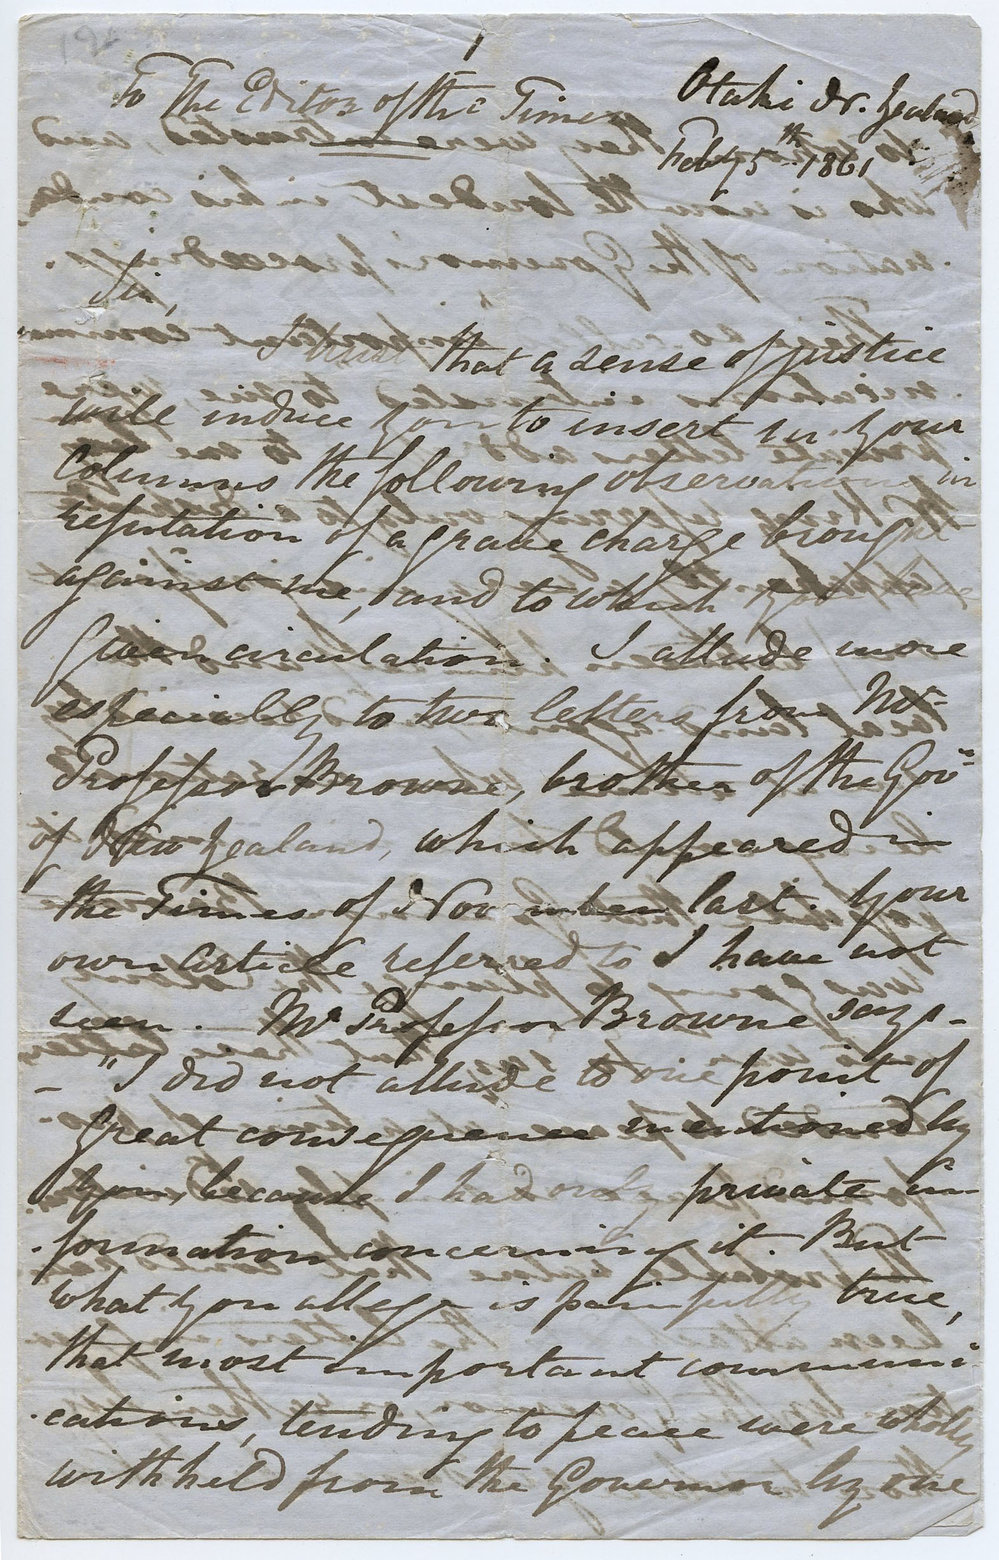 1
To The Editor of the Times
Otaki N. Zealand
Feby 5th 1861
Sir,
I trust that a sense of justice
will induce you to insert in your
Columns the following observations in
refutation of a grave charge brought
against me, and to which you have
given circulation. I allude more
especially to two letters from Mr
Professor Browne, brother of the Govr
of New Zealand, which appeared in
the Times of November last. Your
own article referred to I have not
seen. Mr Professor Browne says -
- "I did not allude to one point of
great consequence mentioned by
you, because I had only private in
-formation concerning it. But
what you allege is painfully true,
that most important communi
-cations, tending to peace were wholly
withheld from the Governor by one